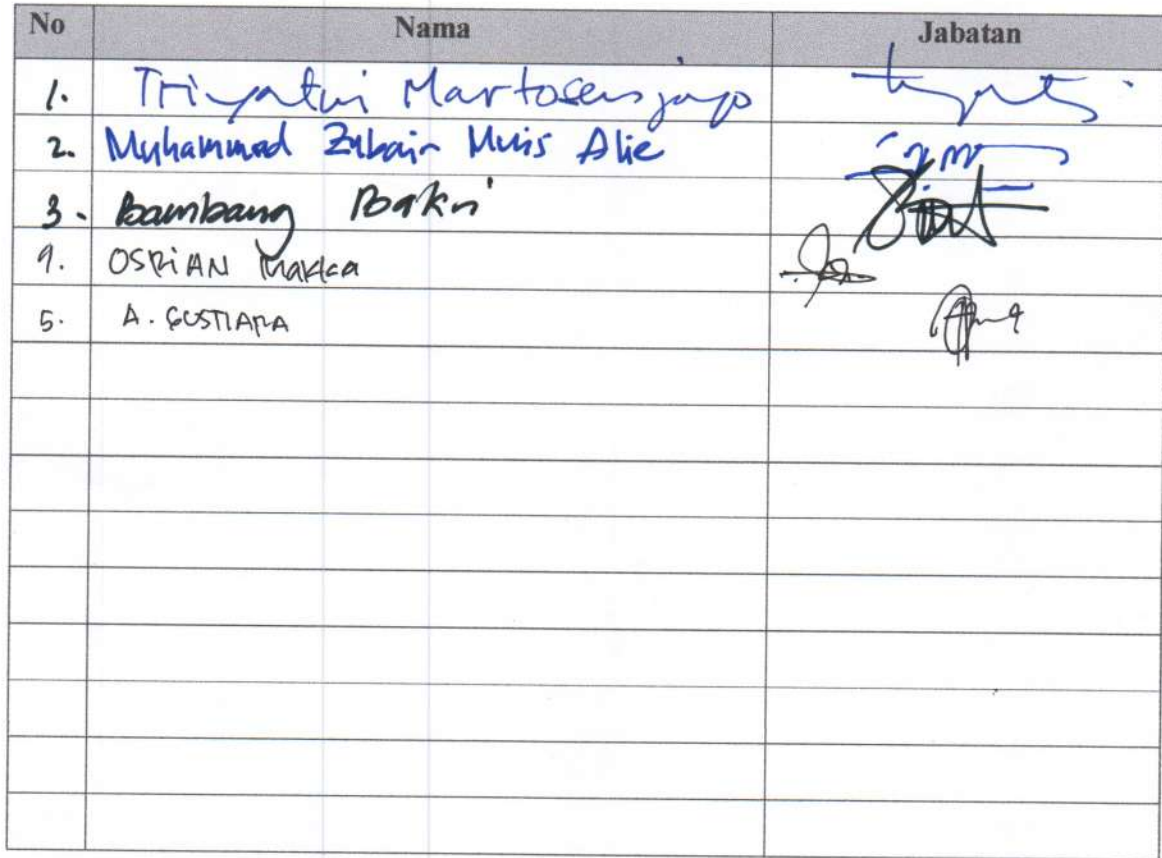 No Nama Jabatan
1. Triyatni Martosenjoyo
2. Muhammad Zubair Muis Alie
3. Bambang Bakri
4. OSRIAN
5. A. GUSTIARA